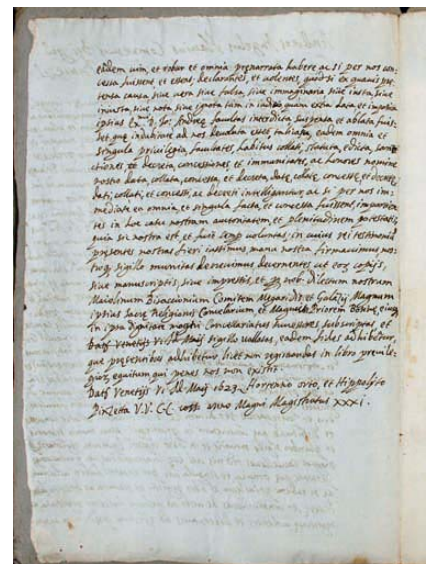 eandem uim, et robur et omnia prenarrata habere ac si per nos con-
cessa fuissent et essent, declarantes, et uolentes, quod si ex quauis pre-
tensa causa, siue uera siue falsa, siue immaginaria siue iusta, siue
iniusta, siue nota siue ignota tam in indus quam extra data et impertita
ipsius Andreę facultas interdicta suspensa et ablata fuis-
set, que indubitate ad nos deuoluta esset tali casu, eadem omnia et
singula priuilegia, facultates, habitus collati, statuta, edicta, sanc-
ctiones, et decreta, concessiones, et immunitates, ac honores nomine
nostro data, collata, concessa, et decreta, date, collate, concesse, et decrete,
dati, collati, et concessi, ac decreti intelligantur, ac si per nos im-
mediate ea omnia et singula facta, et concessa fuissent, impartien-
tes in hoc casu nostram auctoritatem et plenitudinem potestatis,
quia sic nostra est, et fuit semp uoluntas, in cuius rei testimonium
presentes nostras fieri iussimus manu nostra firmauimus nos-
troq sigilo munitas decreuimus, decernentes ut eoq copijs,
siue manuscriptis, siue impressis, et nob. Dilectum nostrum
Maiolinum Bisaccionium Comitem et Magnum
ipsius Sacre Religionis Cancelarium et Magnum Priorem eiusq
in ipsa dignitate magni Concellariatus successores, subscriptas, et
Datę Venetijs sigillo uallatas, eadem fides adhibetur,
que presentibus adhibetur, licet non registrandas in libro preuile-
giorq equitum qui penes nos non existit.
Datę Venetijs Vi Maij 1623. Horrendo orto, et Hippolyto
Dixletta V.V. C.C. anno Magni Magistratus XXXI.